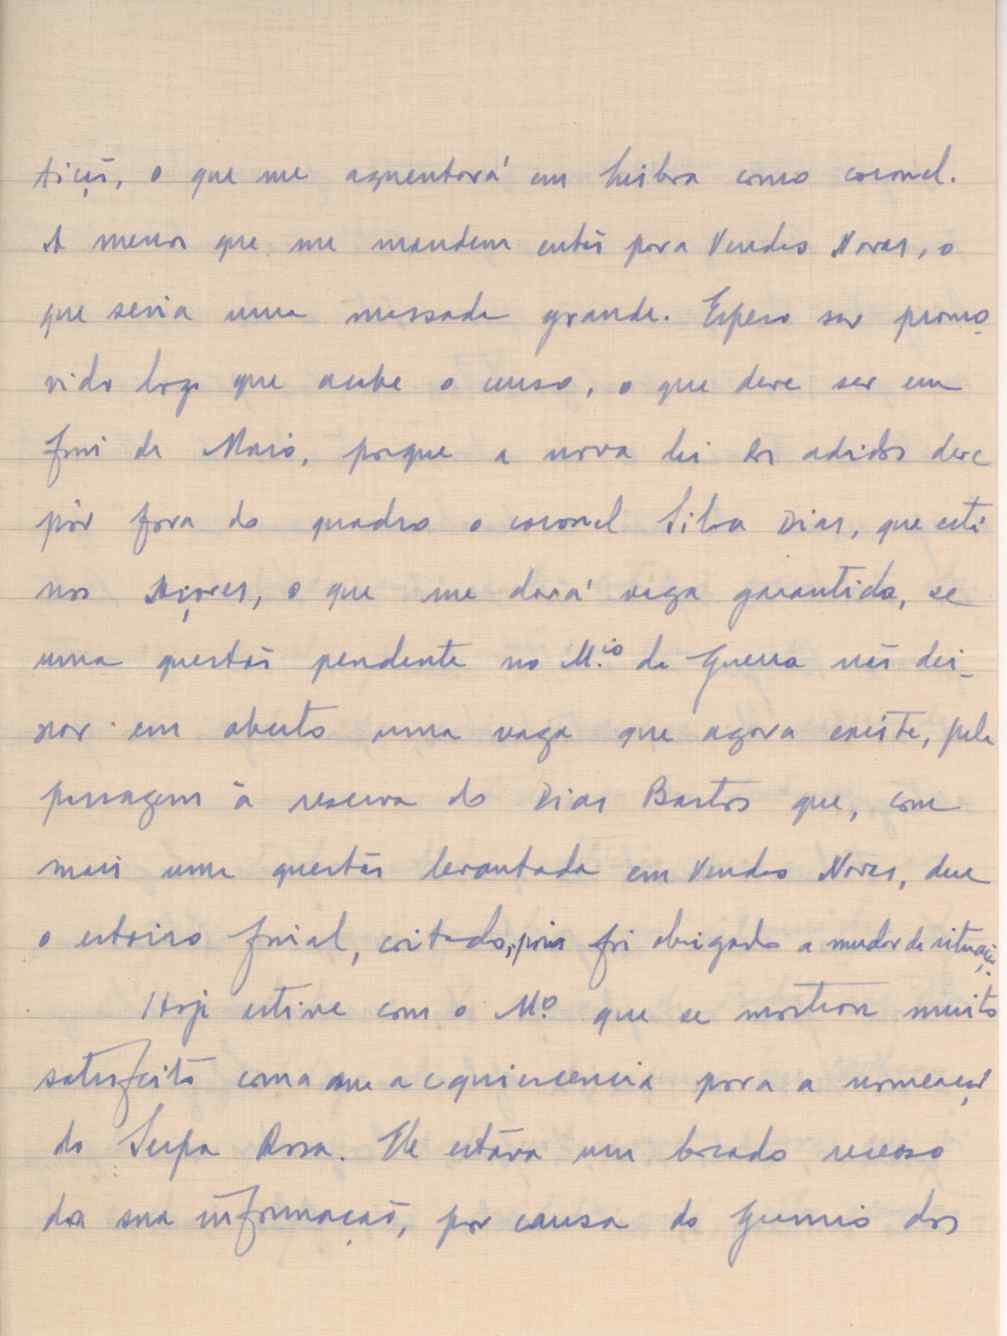 tição, o que me aguentará em Lisboa como coronel.
A menos que me mandem então para Vendas Novas, o
que seria uma massada grande. Espero ser promo
vido logo que acabe o curso, o que deve ser em
fins de Maio, porque a nova lei dos adidos deve
pôr fora do quadro o coronel Silva Dias, que está
nos Açores, o que me dará vaga garantida, se
uma questão pendente no M.io da Guerra não dei-
xar em aberto uma vaga que agora existe, pela
passagem à reserva do Dias Bastos que, com
mais uma questão levantada em Vendas Novas, deu
o estoiro final, coitado, pois foi obrigado a mudar de situação.
Hoje estive com o M.o que se mostrou muito
satisfeito com a sua acquiescencia para a nomeação
do Serpa Rosa. Ele estava um bocado receoso
da sua informação, por causa do Gremio dos